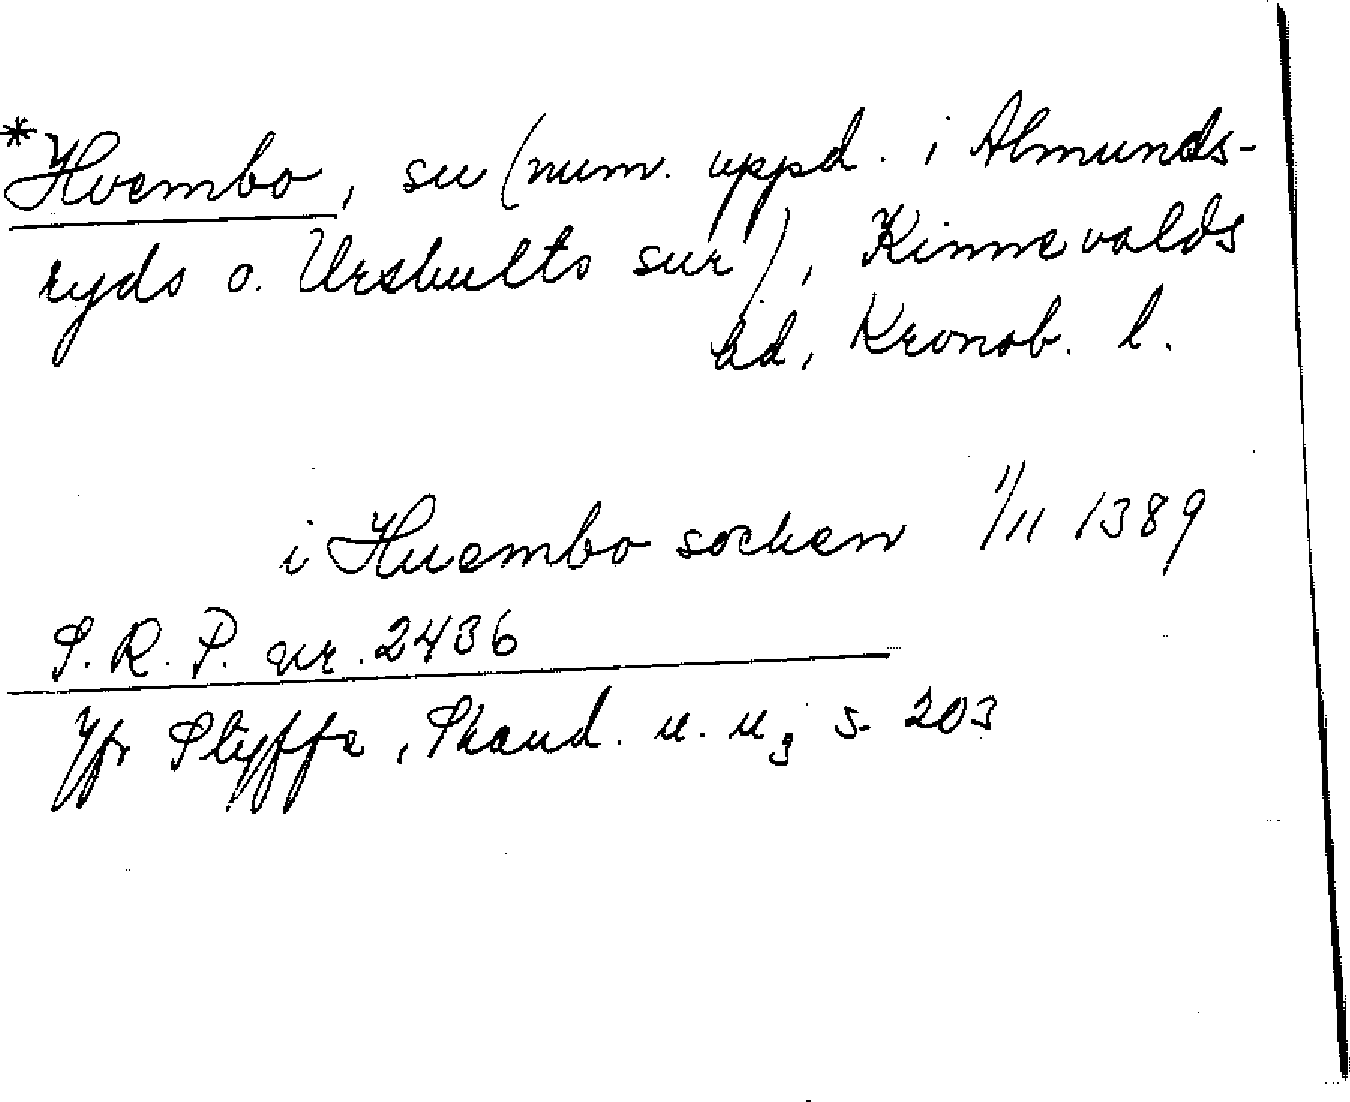 *Hvembo, sn (num. uppd. i Almunds-
ryds o. Urshults snr), Kinnevalds
hd, Kronob. l.
i Huembo socken 1/11 1389
S.R.P. nr. 2436
Jfr Styffe, Skand. u. u₃ s. 203